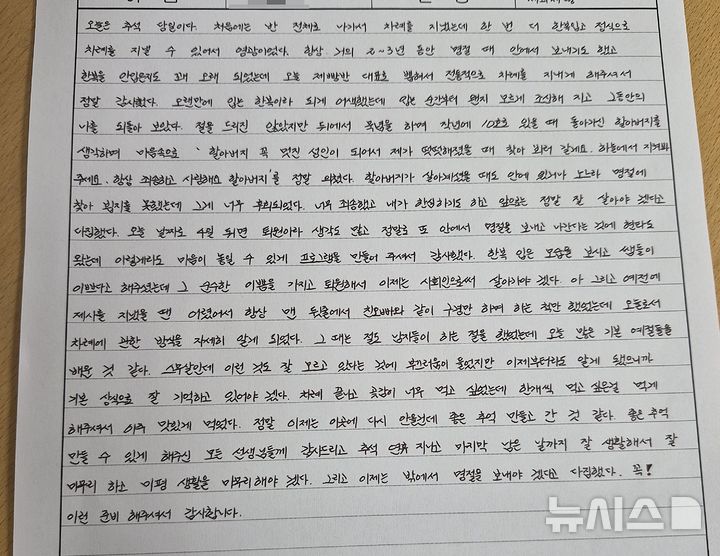 오늘은 추석 당일이다. 처음에는 반 전체로 나가서 차례를 지냈는데 한 번 더 한복입고 정식으로
차례를 지낼 수 있어서 영광이었다. 항상 거의 2~3년 동안 명절 때 안에서 보내기도 했고
한복을 안입은지도 꽤 오래 되었는데 오늘 제빵반 대표로 뽑혀서 전통적으로 차례를 지내게 해주셔서
정말 감사했다. 오랜만에 입는 한복이라 되게 어색했는데 입는 순간부터 왠지 모르게 조신해 지고 그동안의
나를 되돌아 보았다. 절을 드리진 않았지만 뒤에서 묵념을 하며 작년에 10호로 있을 때 돌아가신 할아버지를
생각하며 마음속으로 '할아버지 꼭 멋진 성인이 되어서 제가 떳떳해졌을 때 찾아 뵈러 갈게요. 하늘에서 지켜봐
주세요. 항상 죄송하고 사랑해요 할아버지'를 정말 외쳤다. 할아버지가 살아계셨을 때도 안에 있거나 노느라 명절에
찾아 뵙지를 못했는데 그게 너무 후회되었다. 너무 죄송했고 내가 한심하기도 하고 앞으로는 정말 잘 살아야 겠다고
다짐했다. 오늘 날짜로 4일 뒤면 퇴원이라 생각도 많고 정말로 또 안에서 명절을 보내고 나간다는 것에 현타도
왔는데 이렇게라도 마음이 놓일 수 있게 프로그램을 만들어 주셔서 감사했다. 한복 입은 모습을 보시고 쌤들이
이쁘다고 해주셨는데 그 순수한 이쁨을 가지고 퇴원해서 이제는 사회인으로써 살아가야 겠다. 아 그리고 예전에
제사를 지냈을 땐 어렸어서 항상 맨 뒷줄에서 친오빠와 같이 구경만 하며 하는 척만 했었는데 오늘로서
차례에 관한 방식을 자세히 알게 되었다. 그 때는 절도 남자들이 하는 절을 했었는데 오늘 많은 기본 예절들을
배운 것 같다. 스무살인데 이런 것도 잘 모르고 있다는 것에 부끄러움이 들었지만 이제부터라도 알게 됐으니까
기본 상식으로 잘 기억하고 있어야 겠다. 차례 끝나고 곶감이 너무 먹고 싶었는데 한개씩 먹고 싶은걸 먹게
해주셔서 아주 맛있게 먹었다. 정말 이제는 이곳에 다시 안올건데 좋은 추억 만들고 간 것 같다. 좋은 추억
만들 수 있게 해주신 모든 선생님들께 감사드리고 추석 연휴 지나고 마지막 남은 날까지 잘 생활해서 잘
마무리 하고 이쁨 생활을 마무리해야 겠다. 그리고 이제는 밖에서 명절을 보내야 겠다고 다짐했다. 꼭!
이런 준비 해주셔서 감사합니다.
뉴시스